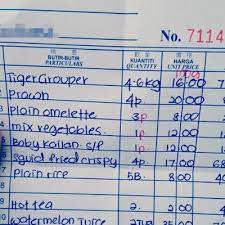 No. 7114
BUTIR-BUTIR KUANTITI HARGA
PARTICULARS QUANTITY UNIT PRICE
100g
Tiger Grouper 4.6kg 16.00 7
Prawn 4p 20.00 8
Plain omelette 3p 8.00
mix vegetables. 1p 12.00
Baby kailan s/p 1p 12.00
squid fried crispy 4p. 17.00
Plain rice 5B. 8.00
9
Hot tea 2. 2.00
10
watermelon juice 00